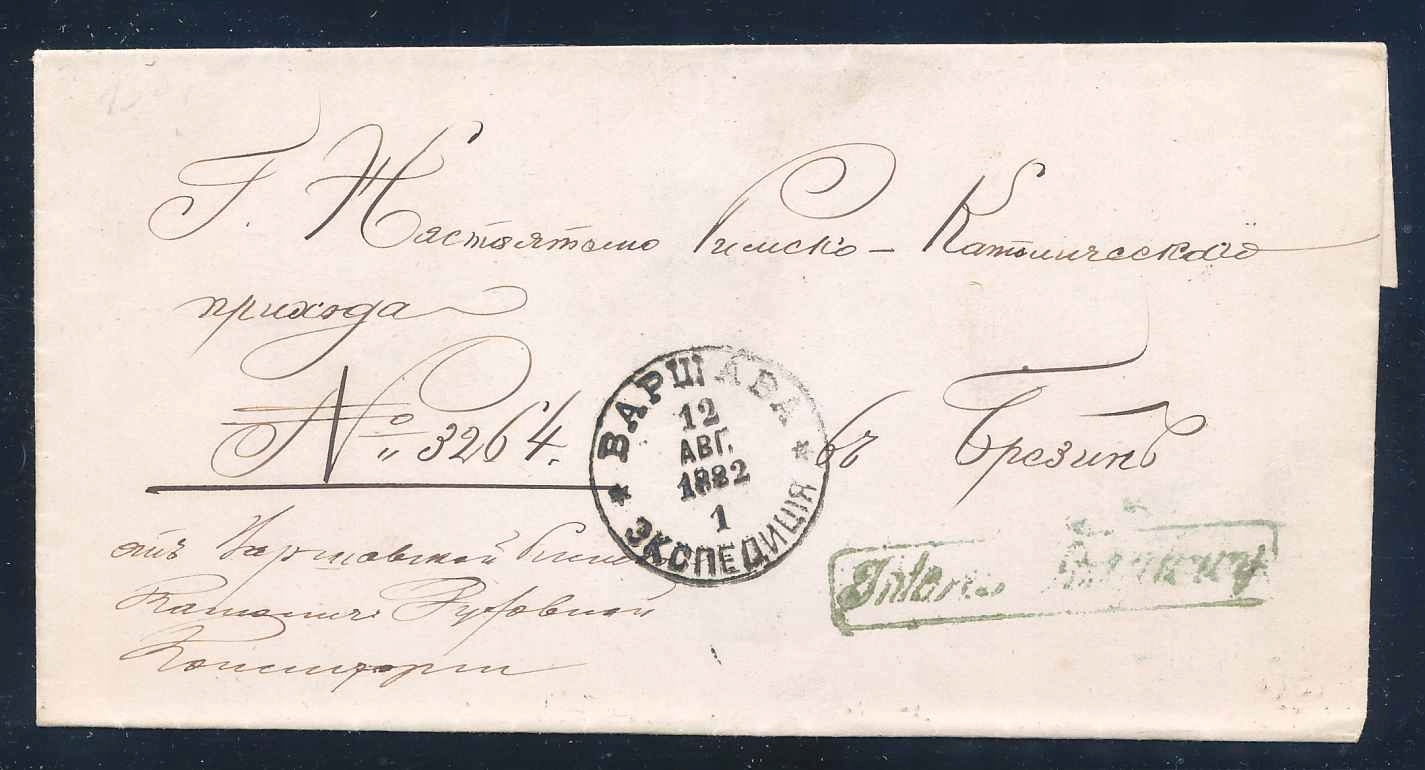 Г. Настоятелю Римско-Католическаго
прихода
№ 3264.
ВАРШАВА
12
АВГ.
1882
1
ЭКСПЕДИЦІЯ
въ Брезинѣ
отъ Варшавской Римско
Католич. Духовной
Консисторіи